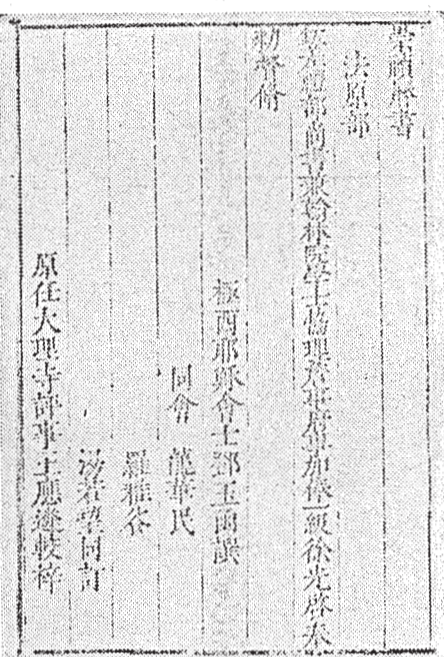 崇禎曆書
法原部
欽差禮部尚書兼翰林院學士協理詹事府事加俸一級徐光啓奉
勑督修
極西耶穌會士鄧玉函譔
同會 龍華民
羅雅谷
湯若望同訂
原任大理寺評事王應遴較梓